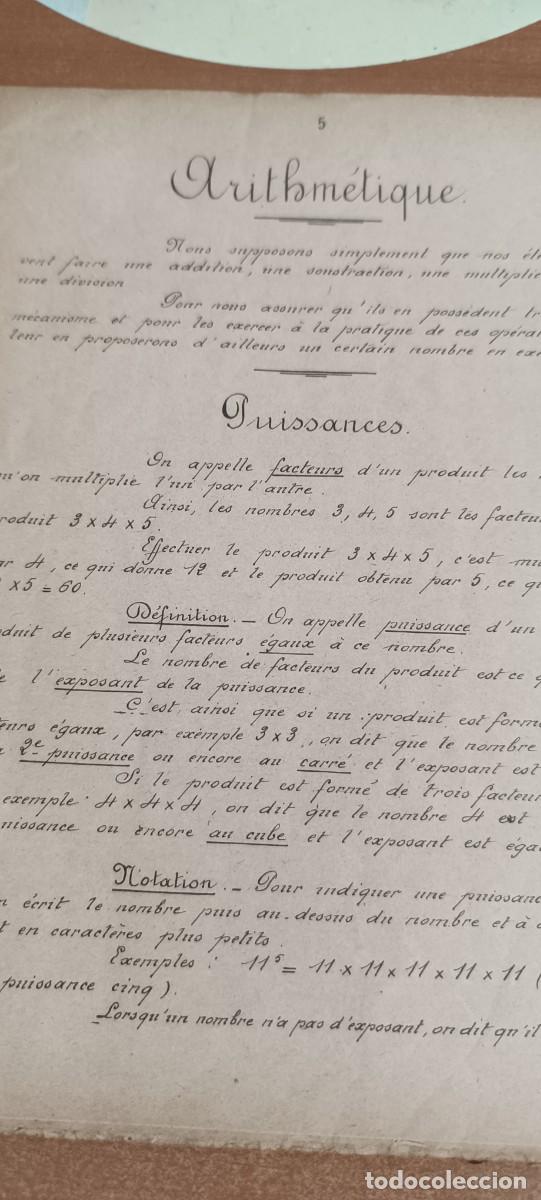 5
Arithmétique.
Nous supposons simplement que nos
vent faire une addition, une soustraction, une
une division
Pour nous assurer qu'ils en possèdent
mécanisme et pour les exercer à la pratique de ces
leur en proposerons d'ailleurs un certain nombre en
Puissances.
On appelle facteurs d'un produit les
qu'on multiplie l'un par l'autre.
Ainsi, les nombres 3, 4, 5 sont les
3 x 4 x 5.
Effectuer le produit 3 x 4 x 5, c'est
4, ce qui donne 12 et le produit obtenu par 5, ce
x 5 = 60.
Définition. _ On appelle puissance d'un
de plusieurs facteurs égaux à ce nombre.
Le nombre de facteurs du produit est ce
l'exposant de la puissance.
C'est ainsi que si un produit est
égaux, par exemple 3 x 3, on dit que le nombre
2e puissance ou encore au carré et l'exposant est
Si le produit est formé de trois
exemple 4 x 4 x 4, on dit que le nombre 4 est
ou encore au cube et l'exposant est
Notation. _ Pour indiquer une
écrit le nombre puis au-dessus du nombre et à
en caractères plus petits.
Exemples : 11⁵ = 11 x 11 x 11 x 11 x 11 (
puissance cinq).
Lorsqu'un nombre n'a pas d'exposant, on dit qu'il
todocoleccion